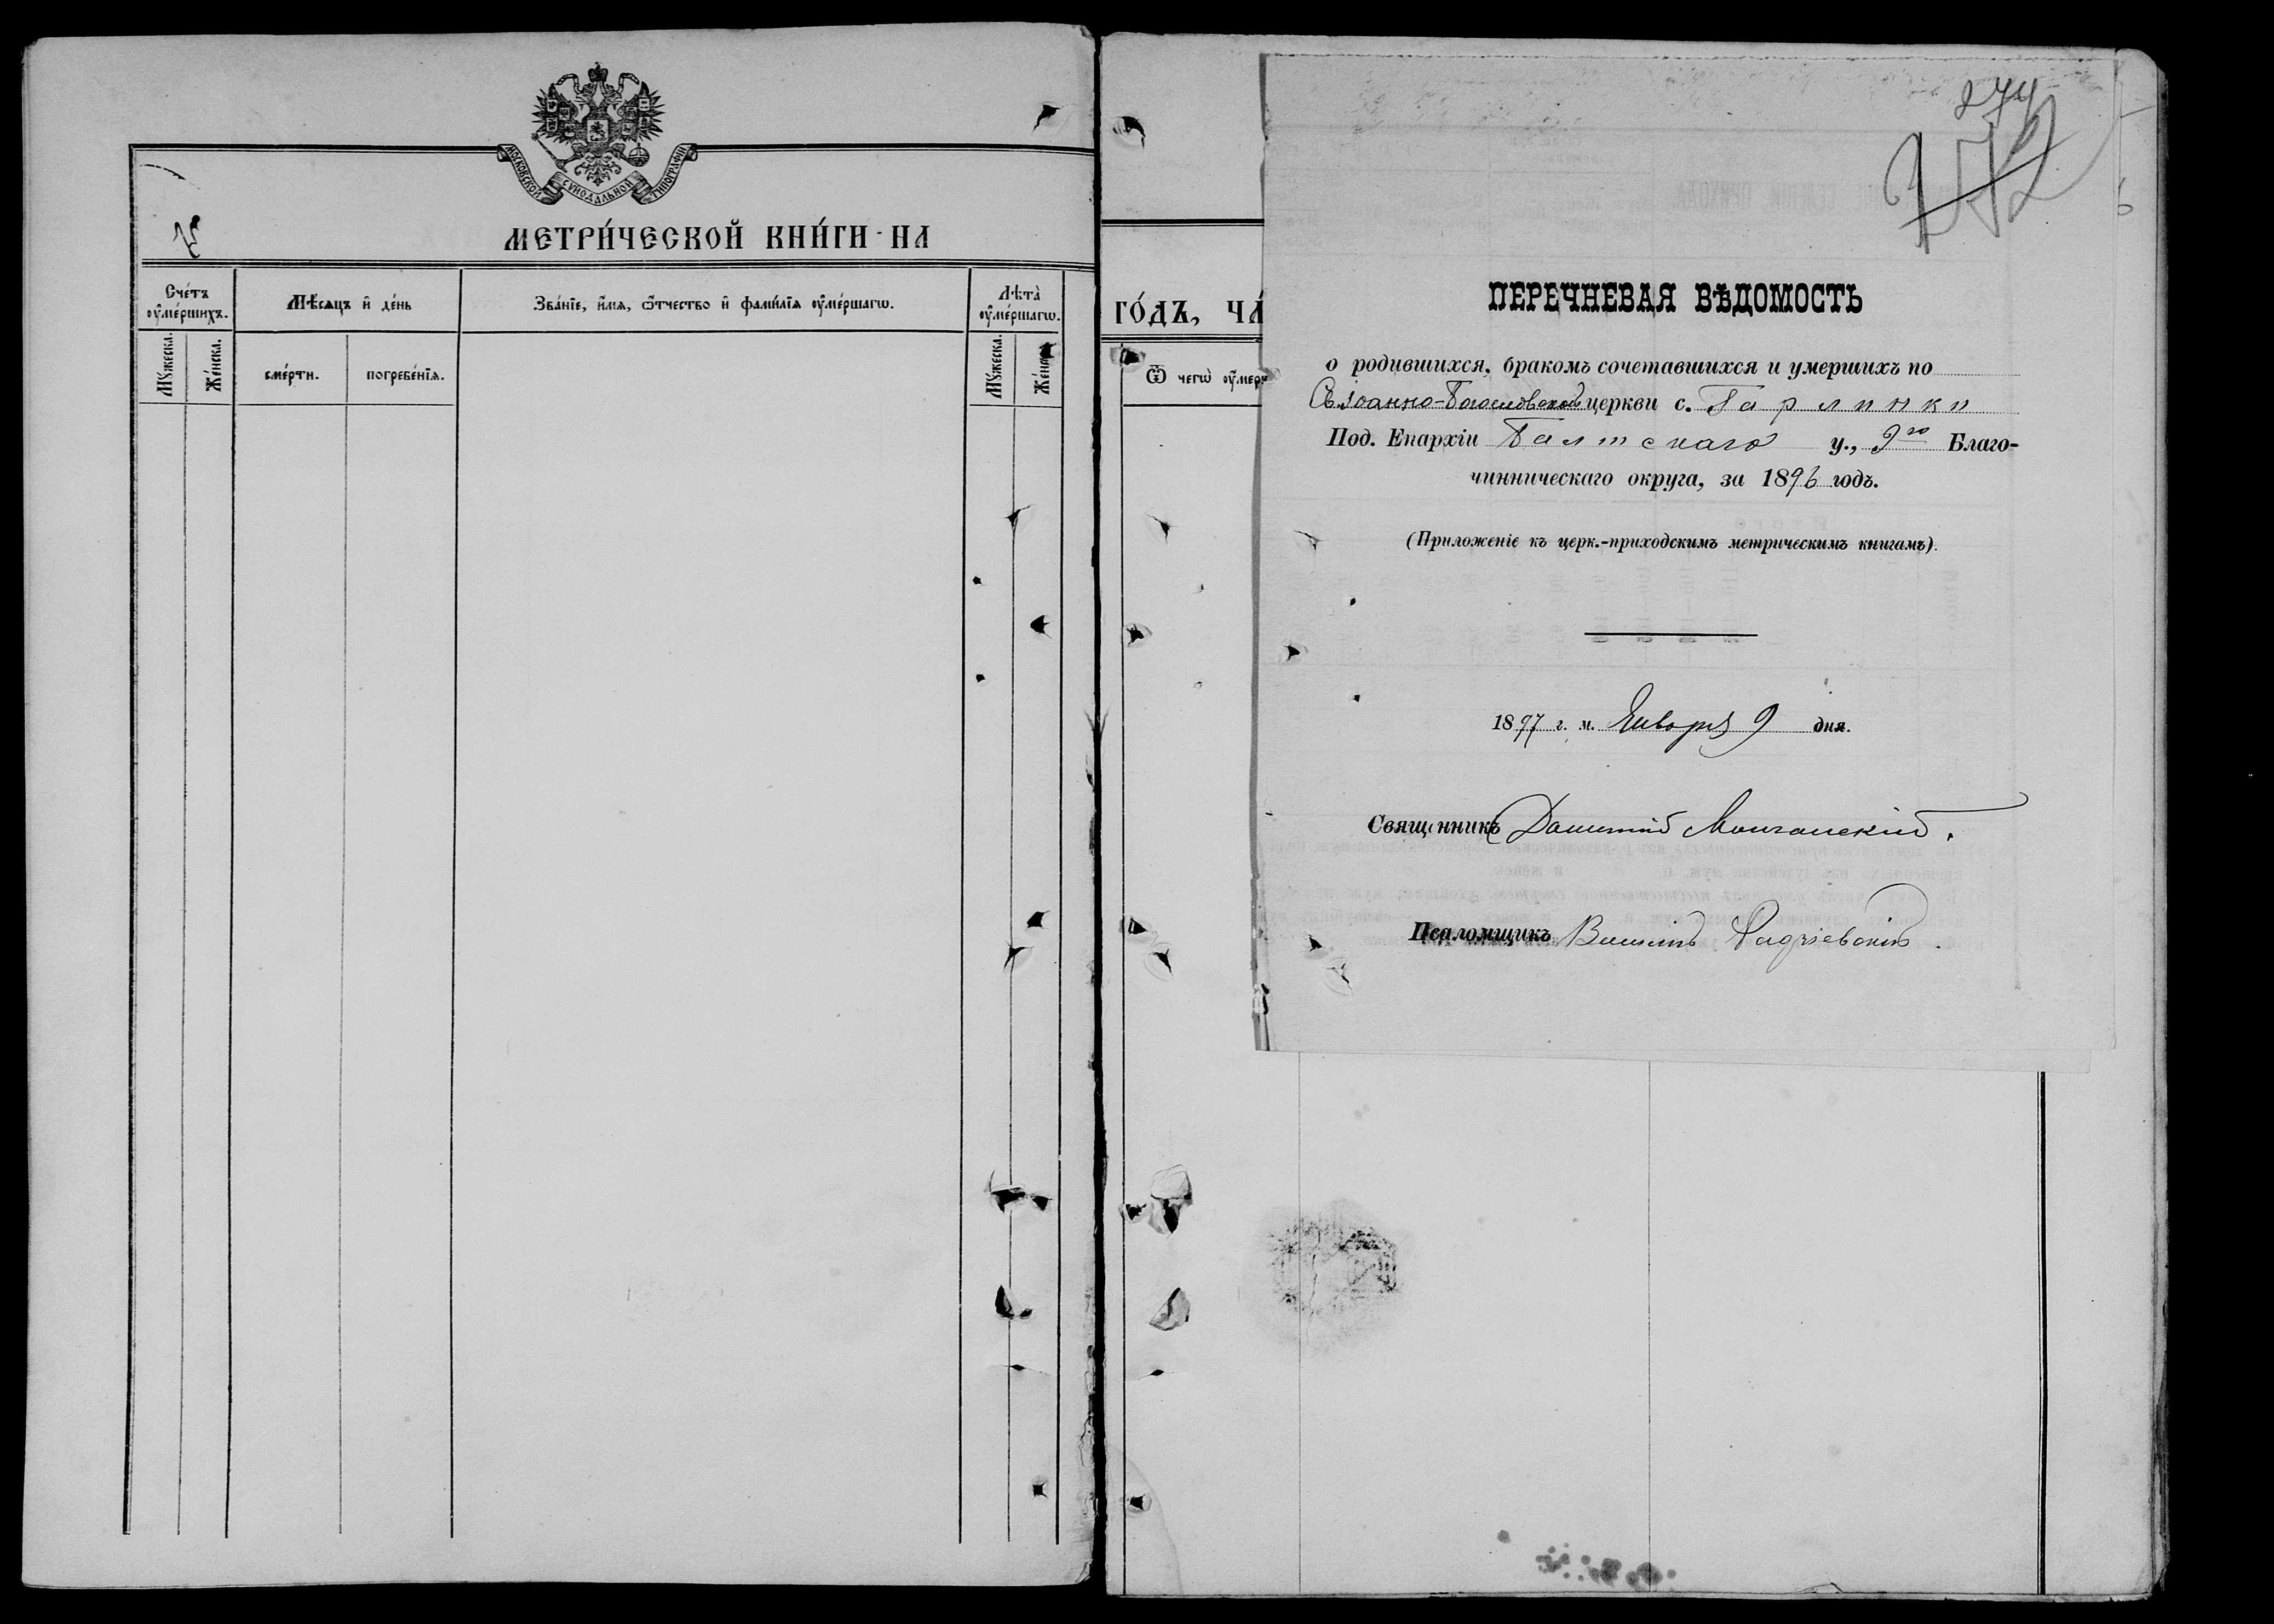 МОСКОВСКОЙ СѴНОДАЛЬНОЙ ТИПОГРАФІИ
МЕТРИ́ЧЕСКОЙ КНИ́ГИ НА
Сче́тъ оу҆ме́ршихъ.
Мѣ́сяцъ и҆ де́нь
Зва́нїе, и҆́мя, ѻ҆́тчество и҆ фами́лїя оу҆ме́ршагѡ.
Лѣта̀ оу҆ме́ршагѡ.
Мꙋжеска.
Же́нска.
сме́рти.
погребе́нїя.
Мꙋжеска.
Же́нска.
ГО́ДЪ, ЧА́
Ѿ чегѡ̀ оу҆мер
274
ПЕРЕЧНЕВАЯ ВѢДОМОСТЬ
о родившихся, бракомъ сочетавшихся и умершихъ по
Св. Іоанно-Богословской церкви с. Гарлинки
Под. Епархіи Балтскаго у., 9го Благо-
чинническаго округа, за 1896 годъ.
(Приложеніе къ церк.-приходскимъ метрическимъ книгамъ).
1897 г. м. Января 9 дня.
Священникъ
Псаломщикъ